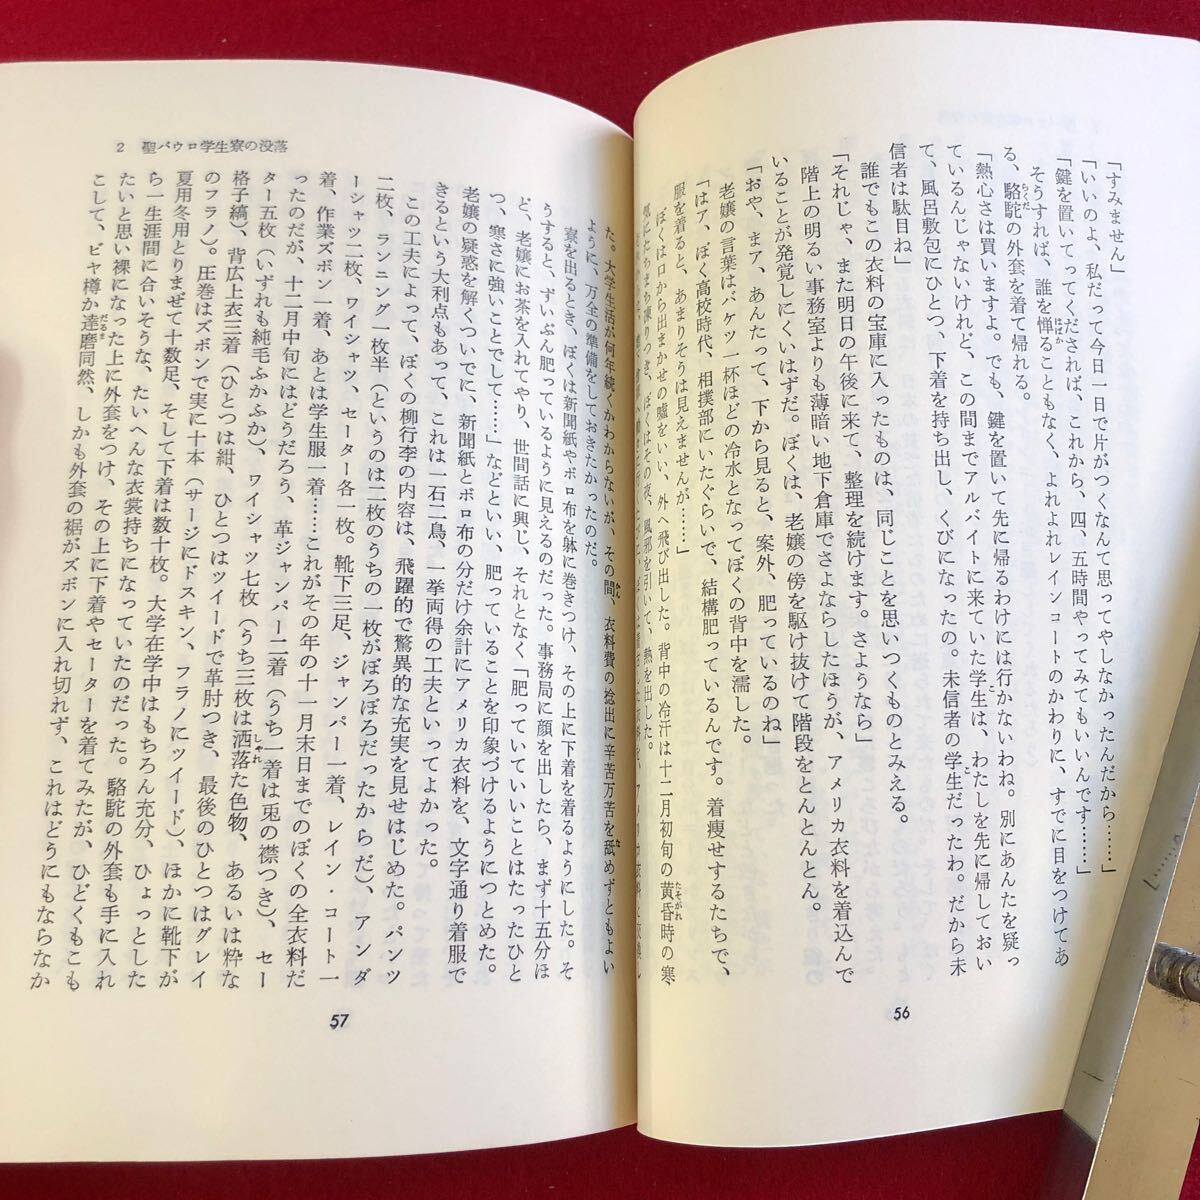 「すみません」
「いいのよ、私だって今日一日で片がつくなんて思ってやしなかったんだから……」
「鍵を置いてってくだされば、これから、四、五時間やってみてもいいんです……」
そうすれば、誰を憚ることもなく、よれよれレインコートのかわりに、すでに目をつけてあ
る、駱駝の外套を着て帰れる。
「熱心さは買いますよ。でも、鍵を置いて先に帰るわけには行かないわね。別にあんたを疑っ
ているんじゃないけれど、この間までアルバイトに来ていた学生は、わたしを先に帰しておい
て、風呂敷包にひとつ、下着を持ち出し、くびになったの。未信者の学生だったわ。だから未
信者は駄目ね」
誰でもこの衣料の宝庫に入ったものは、同じことを思いつくものとみえる。
「それじゃ、また明日の午後に来て、整理を続けます。さようなら」
階上の明るい事務室よりも薄暗い地下倉庫でさよならしたほうが、アメリカ衣料を着込んで
いることが発覚しにくいはずだ。ぼくは、老嬢の傍を駆け抜けて階段をとんとんとん。
「おや、まア、あんたって、下から見ると、案外、肥っているのね」
老嬢の言葉はバケツ一杯ほどの冷水となってぼくの背中を濡した。
「はア、ぼく高校時代、相撲部にいたぐらいで、結構肥っているんです。着痩せするたちで、
服を着ると、あまりそうは見えませんが……」
ぼくは口から出まかせの嘘をいい、外へ飛び出した。背中の冷汗は十二月初旬の黄昏時の寒
気にたちまち凍りつき、ぼくはその夜、風邪を引いて、熱を出した。
56
た。大学生活が何年続くかわからないが、その間、衣料費の捻出に辛苦万苦を舐めずともよい
ように、万全の準備をしておきたかったのだ。
寮を出るとき、ぼくは新聞紙やボロ布を躰に巻きつけ、その上に下着を着るようにした。そ
うすると、ずいぶん肥っているように見えるのだった。事務局に顔を出したら、まず十五分ほ
ど、老嬢にお茶を入れてやり、世間話に興じ、それとなく「肥っていていいことはたったひと
つ、寒さに強いことでして……」などといい、肥っていることを印象づけるようにつとめた。
老嬢の疑惑を解くついでに、新聞紙とボロ布の分だけ余計にアメリカ衣料を、文字通り着服で
きるという大利点もあって、これは一石二鳥、一挙両得の工夫といってよかった。
この工夫によって、ぼくの柳行李の内容は、飛躍的で驚異的な充実を見せはじめた。パンツ
二枚、ランニング一枚半（というのは二枚のうちの一枚がぼろぼろだったからだ）、アンダ
ーシャツ二枚、ワイシャツ、セーター各一枚。靴下三足、ジャンパー一着、レイン・コート一
着、作業ズボン一着、あとは学生服一着……これがその年の十一月末日までのぼくの全衣料だ
ったのだが、十二月中旬にはどうだろう、革ジャンパー二着（うち一着は兎の襟つき）、セー
ター五枚（いずれも純毛ふかふか）、ワイシャツ七枚（うち三枚は洒落た色物、あるいは粋な
格子縞）、背広上衣三着（ひとつは紺、ひとつはツイードで革肘つき、最後のひとつはグレイ
のフラノ）。圧巻はズボンで実に十本（サージにドスキン、フラノにツイード）、ほかに靴下が
夏用冬用とりまぜて十数足、そして下着は数十枚。大学在学中はもちろん充分、ひょっとした
ら一生涯間に合いそうな、たいへんな衣裳持ちになっていたのだった。駱駝の外套も手に入れ
たいと思い裸になった上に外套をつけ、その上に下着やセーターを着てみたが、ひどくもこも
こして、ビヤ樽か達磨同然、しかも外套の裾がズボンに入れ切れず、これはどうにもならなか
2 聖パウロ学生寮の没落
57